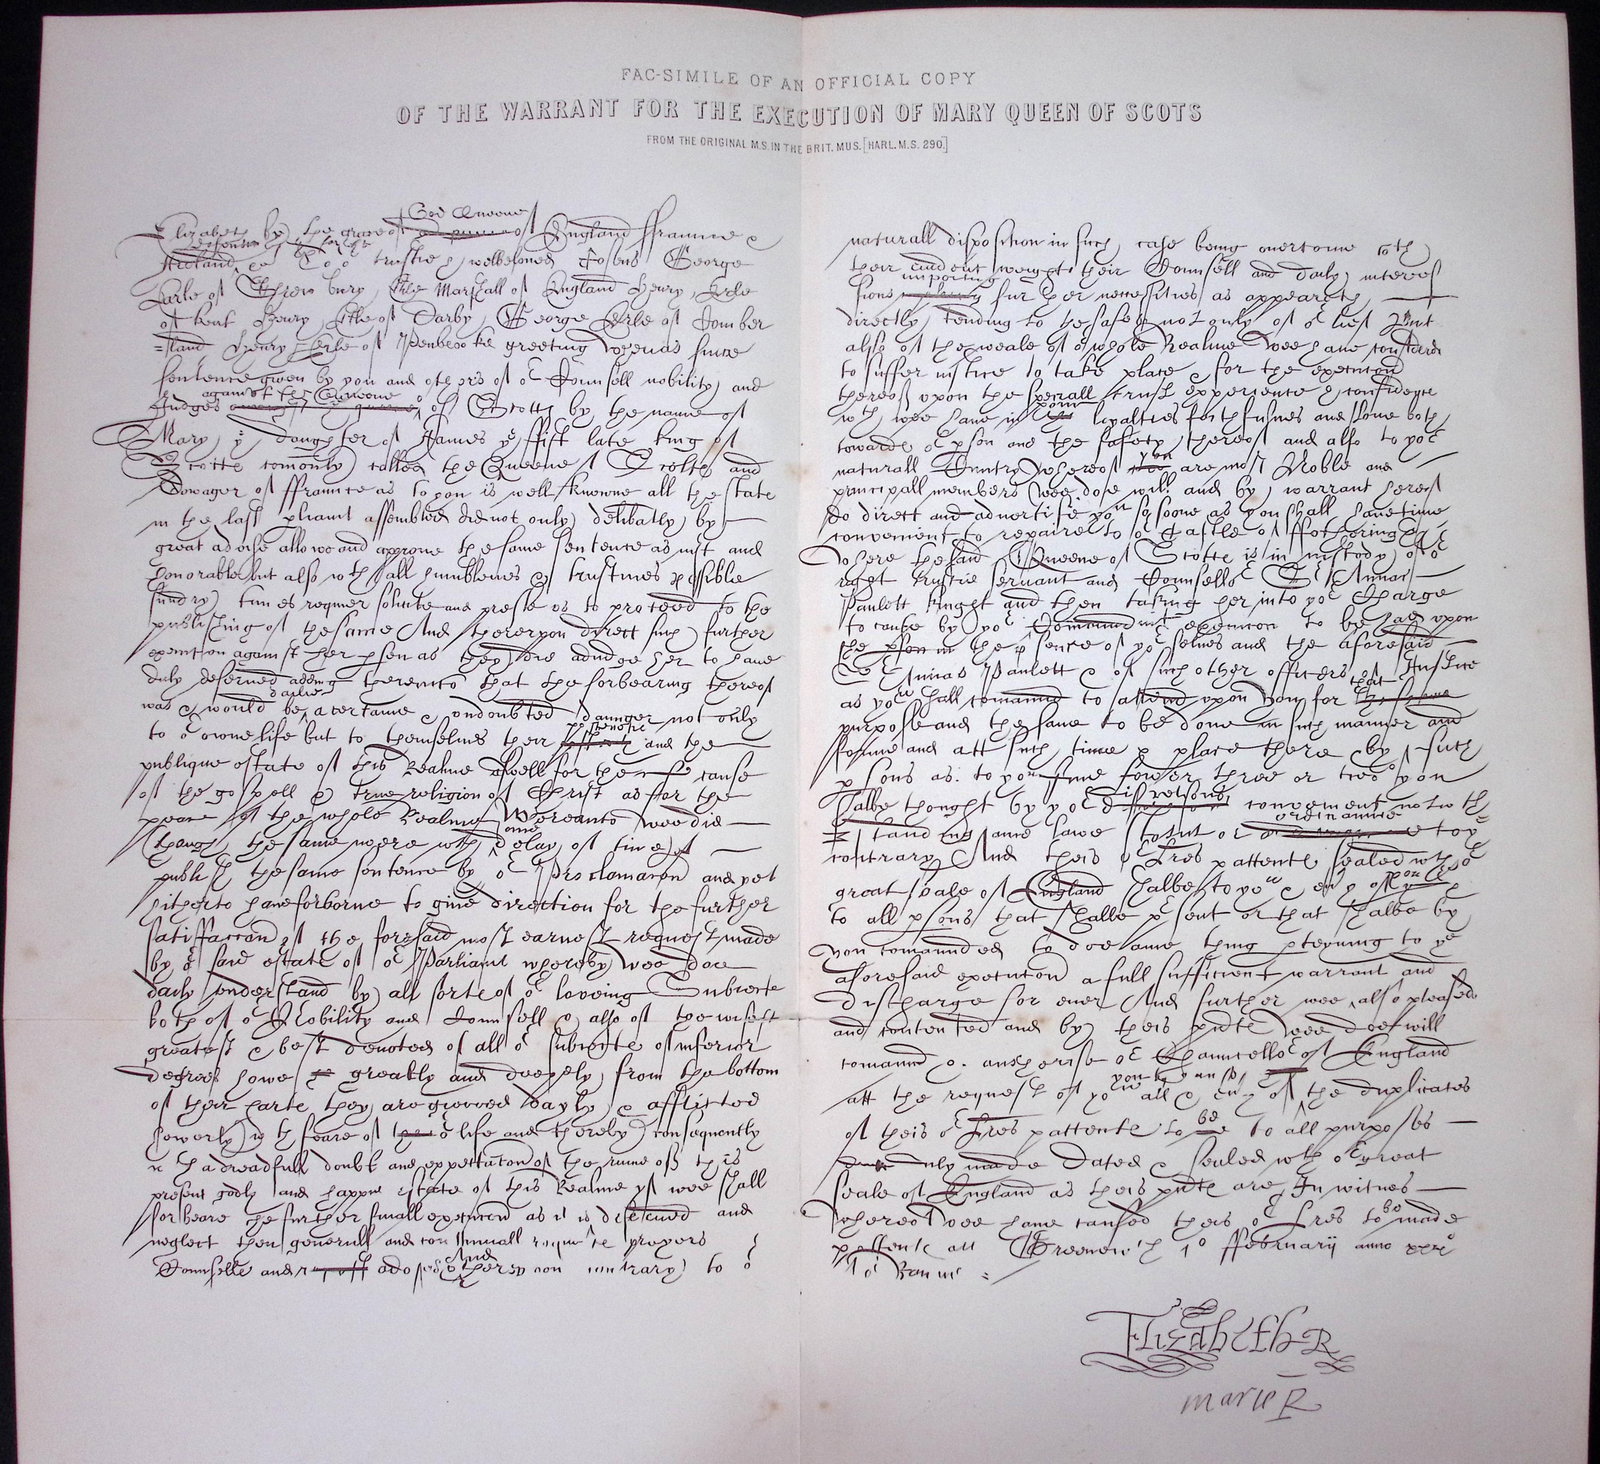 FAC-SIMILE OF AN OFFICIAL COPY
OF THE WARRANT FOR THE EXECUTION OF MARY QUEEN OF SCOTS
FROM THE ORIGINAL M.S. IN THE BRIT. MUS. [HARL. M.S. 290.]
God Queene
Elizabeth by the grace of of England ffraunce &
Ireland trustie & welbeloved Cosens George
Earle of Shrewsbury Erle Marshall of England Henry Erle
of Kent Henry Erle of Darby George Erle of Comber
=land Henry Erle of Penbrooke greeting Wheras since
sentence given by you and others of or Counsell nobility and
against the Queene
Judges of Scotts by the name of
Mary ye doughter of James ye ffift late King of
Scotte comonly called the Queene of Scotts and
Dowager of ffraunce as to you is well knowne all the state
in the last pliamt assembled did not only delibatly by
great advise allowe and approve the same sentence as just and
honorable but also wth all humblenes & possible
sundry times requier solicite and presse us to proceed to the
publishing of the same And thereupon direct such further
execution against her pson as they did adiudge her to have
duly deserved adding thereunto that the forbearing thereof
dailie
was & would be a certaine & undoubted daunger not only
to or owne life but to themselves their and the
publique estate of this Realme aswell for the cause
of the gospell & true religion of Christ as for the
peace of the whole Realme Whereunto wee did
some
though the same were wth delay of time
publish the same sentence by or Proclamacon and yet
hitherto have forborne to give direction for the further
satisfaccon of the foresaid most earnest request made
by or said estate of or Parliamt whereby wee doe
daily understand by all sorte of or loveing Subiecte
both of or Nobility and Counsell & also of the wisest
greatest & best devoted of all or subiecte of inferior
degrees howe greatly and deepely from the bottom
of their harte they are greeved dayly & afflicted
sowerly wth feare of or life and thereby consequently
wth a dreadfull doubt and expectacon of the ruine of this
present godly and happie estate of this Realme yf wee shall
forbeare the further finall execucon as it is deserved and
neglect their generall and continuall requeste prayers
Counselle and And thereupon contrary to or
naturall disposition in such case being overcome wth
their evident weight of their Counsell and daily interces
importing
sions further necessities as appeareth
directly tending to the safety not only of or self but
also of the weale of or whole Realme Wee have
to suffer iustice to take place & for the execucon
thereof upon the speciall trust experience & confidence
your
wch wee have in loyalties faithfulnes and love both
towarde or pson and the safety thereof and also to yor
you
naturall Cuntry Whereof are most Noble and
principall members wee doe will and by warrant hereof
do direct and advertise you so soone as you shall have time
convenient to repaire to or Castle of ffotheringhay
Where the said Queene of Scotte is in custody of or
right trustie servant and Counsellor Sr Amias
Paulett Knight and then taking her into yor Charge
to cause by yor execucon to be had upon
the pson in the psence of yor selves and the aforesaid
Sr Amias Paulett & of such other officers of Justice
that
as you shall comaund to attend upon you for
purpose and the same to be done in such manner and
forme and att such time & place there & by such
psons as to you five fower three or two of you
discretions
shalbe thought by yor convenient notwth
ordinaunce
standing anie lawe statut or to ye
contrary And theis or Lres pattente sealed wth or
great seale of England shalbe to you & evy of you
to all psons that shalbe psent or that shalbe by
you comaunded to doe anie thing pteyning to ye
aforesaid execucon a full sufficient warrant and
discharge for ever And further wee also pleased
and contented and by theis psente wee doe will
comaund & authorise or Chauncellor of England
att the request of you all & evy of the duplicates
be
of theis or Lres pattente to to all purposes
duly made Dated & sealed wth or great
seale of England as theis psente are In witnes
be
Whereof wee have caused theis or Lres to made
pattente att Greenewch 1o ffebruarij anno
Elizabeth R
Marie R